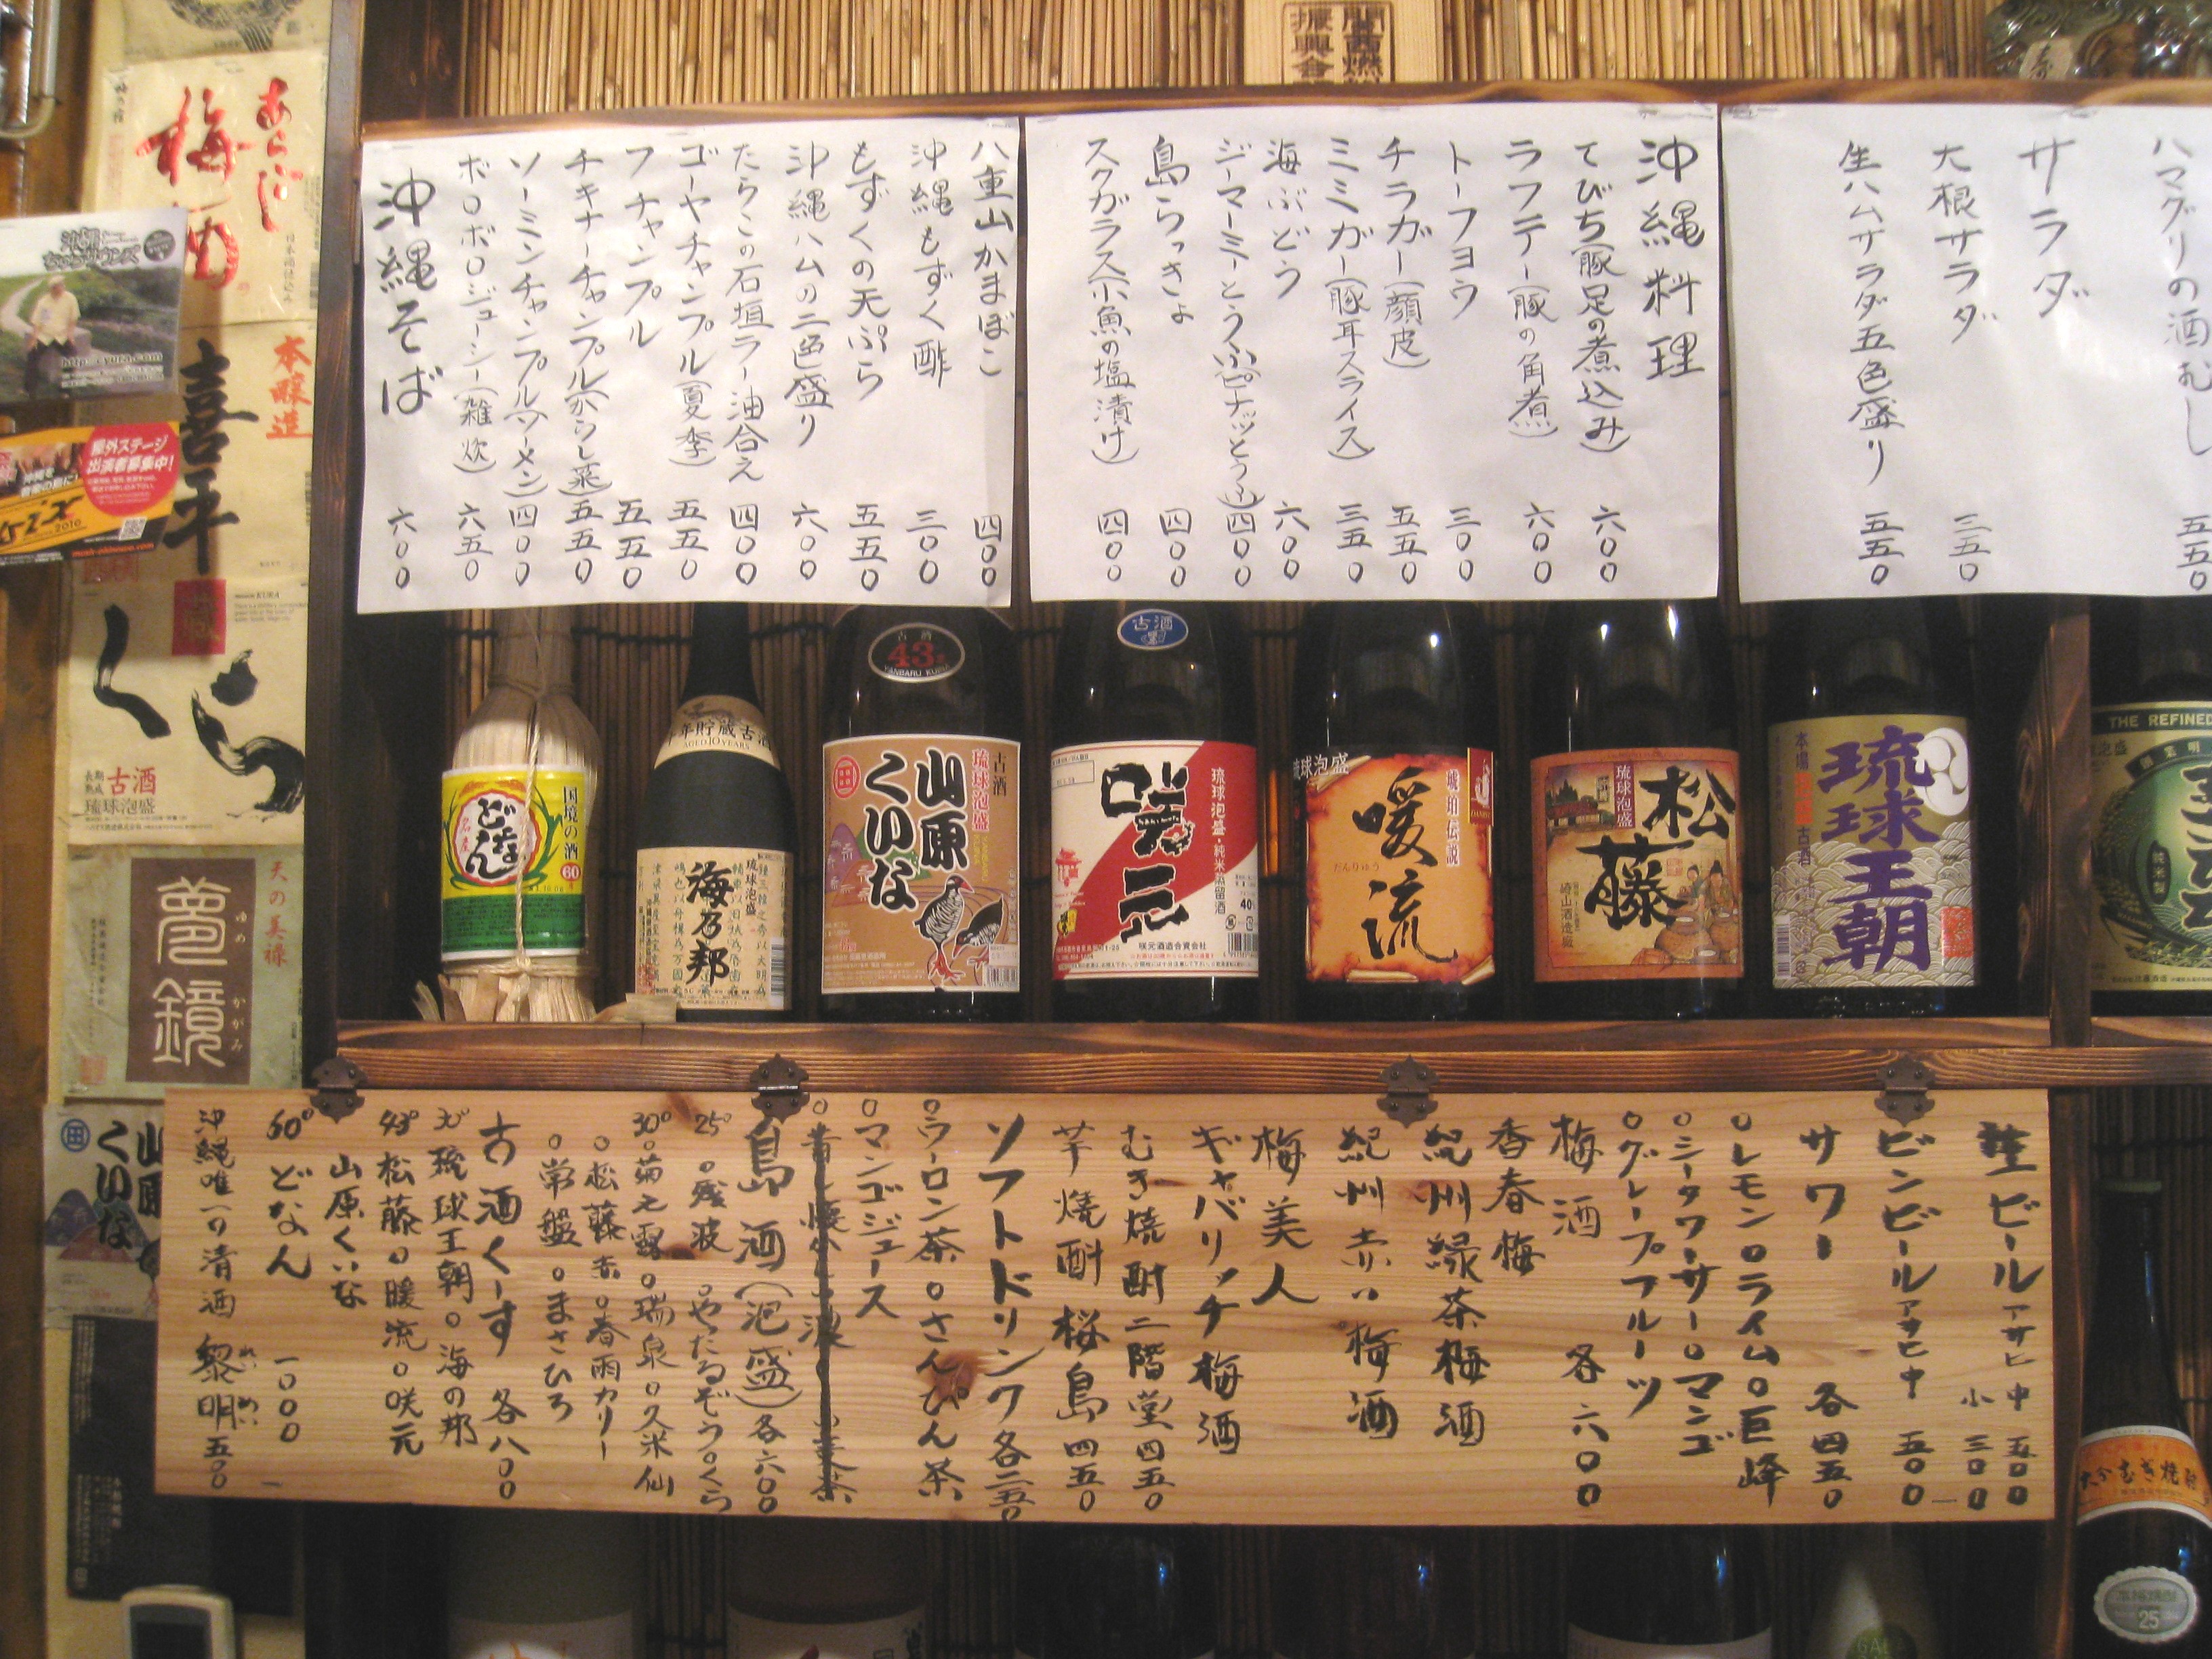 関西燃
振興会
ハマグリの酒むし 五五〇
サラダ
大根サラダ 三五〇
生ハムサラダ五色盛り 五五〇
沖縄料理
てびち(豚足の煮込み) 六〇〇
ラフテー(豚の角煮) 六〇〇
トーフヨウ 三〇〇
チラガー(顔皮) 五五〇
ミミガー(豚耳スライス) 三五〇
海ぶどう 六〇〇
ジーマーミーとうふ(ピーナッツとうふ) 四〇〇
島らっきょ 四〇〇
スクガラス(小魚の塩漬け) 四〇〇
八重山かまぼこ 四〇〇
沖縄もずく酢 三〇〇
もずくの天ぷら 五五〇
沖縄ハムの二色盛り 六〇〇
たらこの石垣ラー油合え 四〇〇
ゴーヤチャンプル(夏季) 五五〇
フチャンプル 五五〇
チキナーチャンプル(からし菜) 五五〇
ソーミンチャンプル(ソーメン) 四〇〇
ボロボロジューシー(雑炊) 六五〇
沖縄そば 六〇〇
あらごし
梅酒
本醸造
喜平
くら
長期熟成 古酒
琉球泡盛
天の美禄
夢鏡
ゆめ
かがみ
山原
くいな
野外ステージ
出演者募集中!
2010
国境の酒
どなん
名産
60
十年貯蔵古酒
AGED 10 YEARS
琉球泡盛
海乃邦
古酒
43
YANBARU KUINA
古酒
琉球泡盛
山原
くいな
古酒
琉球泡盛・純米蒸留酒
咲元
40
咲元酒造合資会社
琉球泡盛
琥珀伝説
暖流
だんりゅう
琉球泡盛
松藤
崎山酒造廠
本場
古酒
琉球王朝
THE REFINED
純米製
生ビール アサヒ 中 五〇〇
小 三〇〇
ビンビール アサヒ 中 五〇〇
サワー 各四五〇
○レモン○ライム○巨峰
○シークワーサー○マンゴ
○グレープフルーツ
梅酒 各六〇〇
香春梅
紀州緑茶梅酒
紀州赤い梅酒
梅美人
ギャバリッチ梅酒
むぎ焼酎 二階堂 四五〇
芋焼酎 桜島 四五〇
ソフトドリンク各二五〇
○ウーロン茶○さんぴん茶
○マンゴジュース
島酒(泡盛)各六〇〇
25° ○残波 ○やたるぞう○くら
30° ○菊之露○瑞泉○久米仙
○松藤赤○春雨カリー
○常盤○まさひろ
古酒くーす 各八〇〇
30° 琉球王朝○海の邦
43° 松藤○暖流○咲元
山原くいな
60° どなん 一〇〇〇
沖縄唯一の清酒 黎明 五〇〇
れい めい
大分むぎ焼酎
25